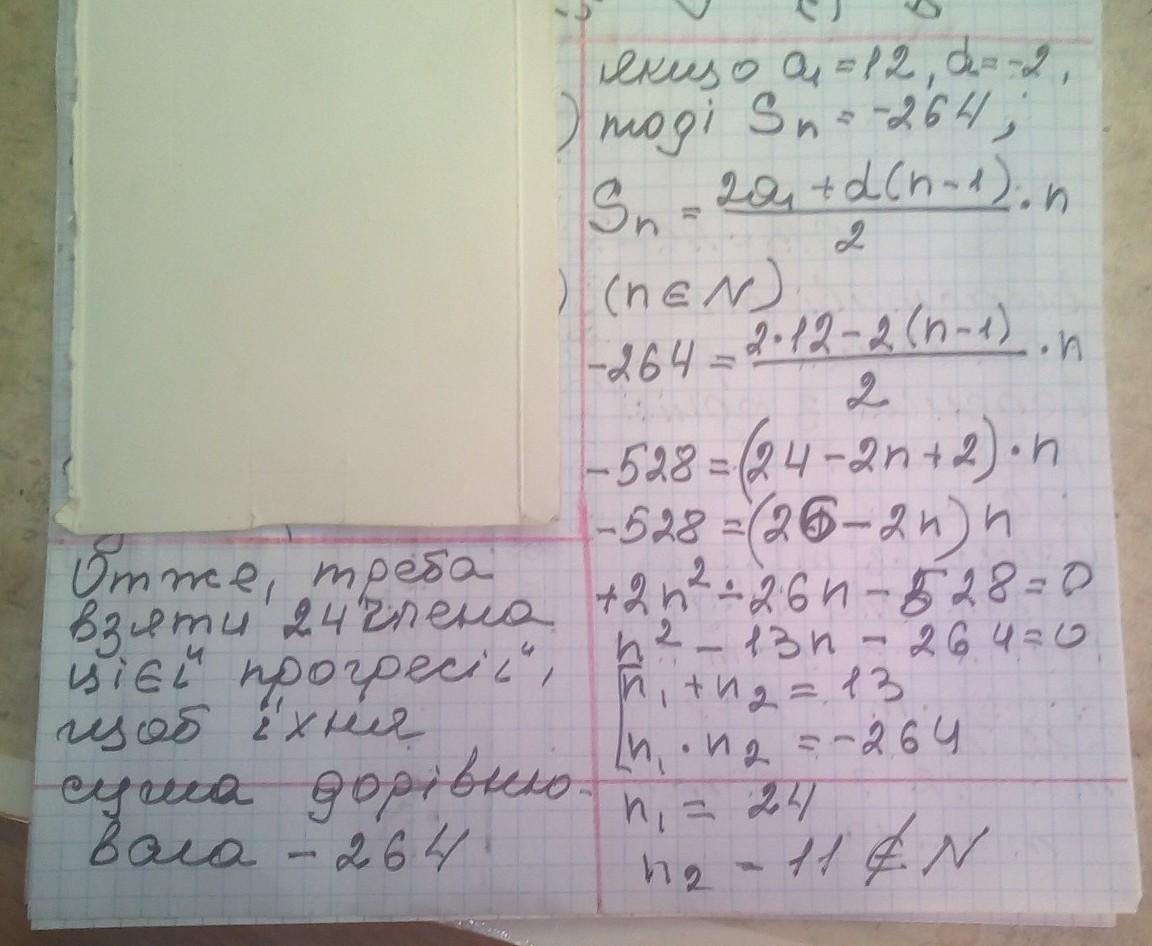 якщо a₁ = 12, d = -2,
) тоді Sₙ = -264;
Sₙ = (2a₁ + d(n-1))/2 · n
) (n ∈ N)
-264 = (2·12 - 2(n-1))/2 · n
-528 = (24 - 2n + 2) · n
-528 = (26 - 2n) n
+2n² - 26n - 528 = 0
n² - 13n - 264 = 0
[n₁ + n₂ = 13
[n₁ · n₂ = -264
n₁ = 24
n₂ - 11 ∉ N
Отже, треба
взяти 24 члена
цієї прогресії,
щоб їхня
сума дорівню-
вала -264